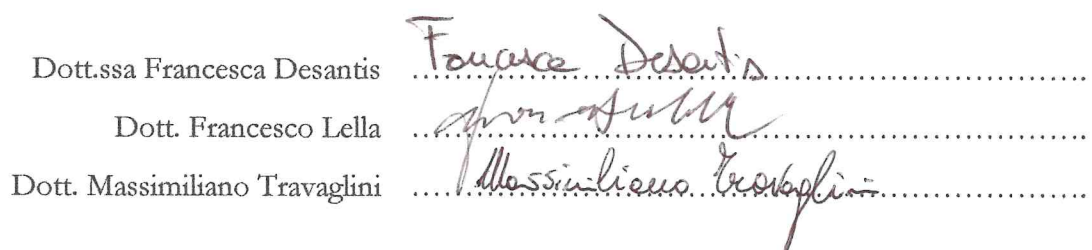 Dott.ssa Francesca Desantis Francesca Desantis
Dott. Francesco Lella
Dott. Massimiliano Travaglini Massimiliano Travaglini